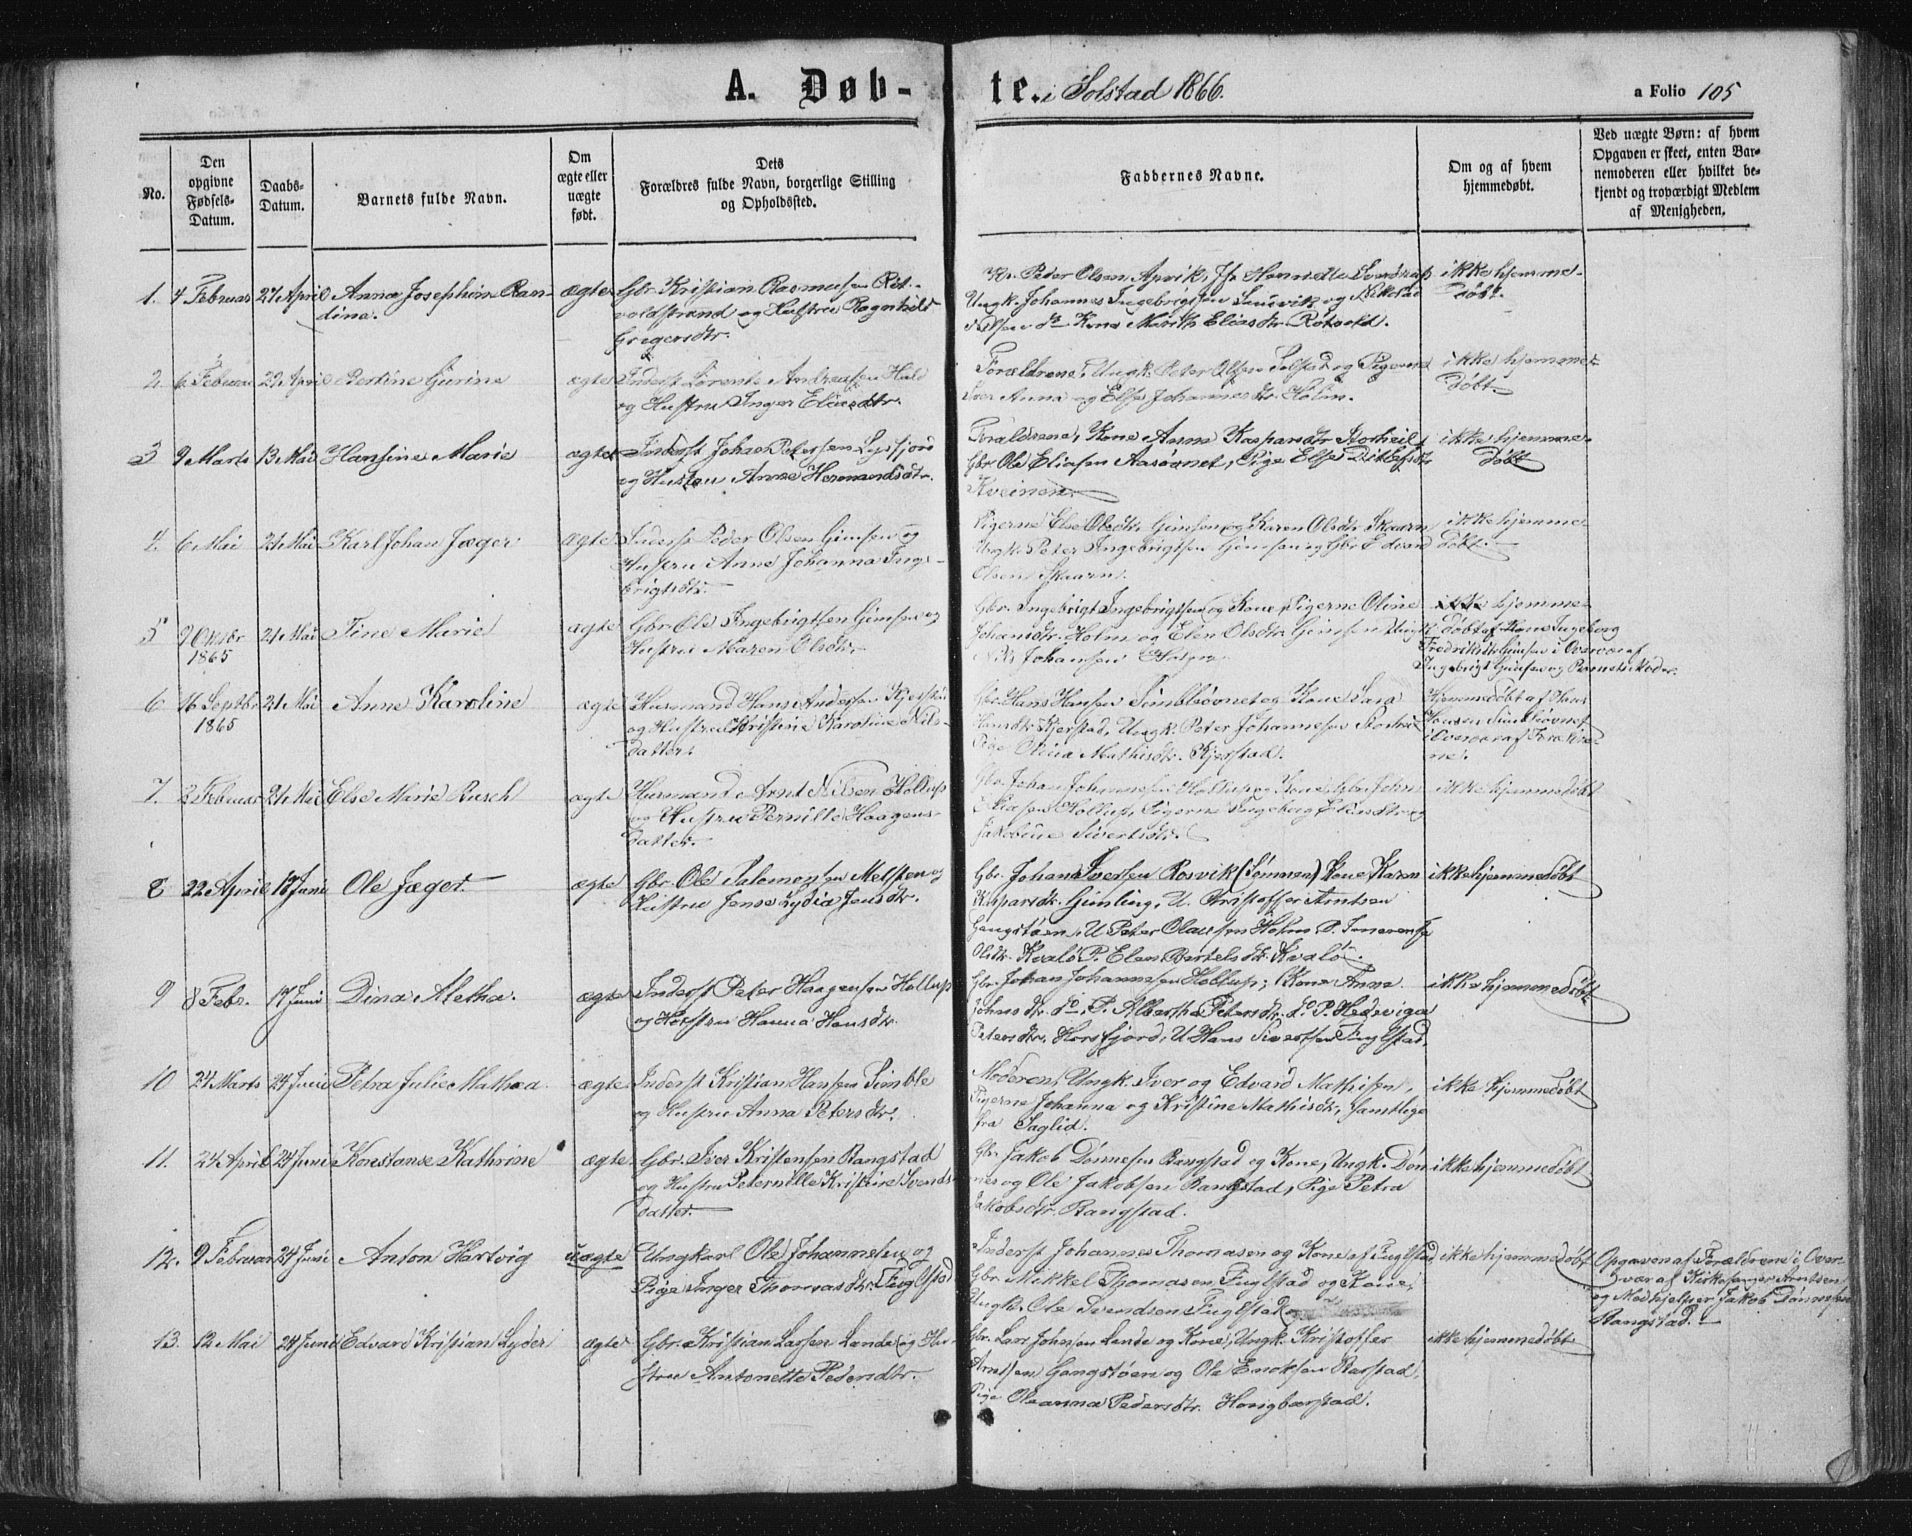 A. Døb-te. i Solstad 1866.
a Folio 105
No.
Den opgivne Fødsels-Datum.
Daabs-Datum.
Barnets fulde Navn.
Om ægte eller uægte født.
Dets Forældres fulde Navn, borgerlige Stilling og Opholdssted.
Faddernes Navne.
Om og af hvem hjemmedøbt.
Ved uægte Børn: af hvem Opgaven er skeet, enten Barnemoderen eller hvilket bekjendt og troværdigt Medlem af Menigheden.
1. 4 Februar 2 April Anna Josephine Ran-
dine.
ægte
Gbr. Kristian Rasmusen
voldstrand og Hustru Ragnhild
Gregersdtr.
Peder Olsen
Ungk. Johannes Ingebrigtsen
Kone Marith Eliasdtr.
ikke hjemme-
døbt.
2. 6 Februar 29 April Bertine Gurine
ægte
Inderst Andreassen
og Hustru Inger Eliasdtr.
Forældrene, Ungk. Peter Olsen Solstad og Pigerne
Anna og Else Johannesdtr. Holm.
ikke hjemme-
døbt
3 9 Marts 13 Mai Hansine Marie
ægte
Inderst Johan Petersen
og Hustru Anne Hermandsdtr.
Forældrene, Kone Anne Kasparsdtr
Gbr. Ole Eliasen Aasövnet, Pige Else Ditlefsdtr
Kveinen.
ikke hjemme-
døbt
4. 6 Mai 21 Mai Karl Johan Jæger
ægte
Inderst Peder Olsen Gimsen og
Hustru Anne Johanna Inge-
brigtsdtr.
Pigerne Else Olsdtr. Gimsen og Karen Olsdtr. Skaarn
Ungk. Peter Ingebrigtsen Gimsen og Gbr Edvard
Olsen Skaarn.
ikke hjemme-
døbt.
5 9 Oktbr 1865 21 Mai Tine Marie
ægte
Gbr. Ole Ingebrigtsen Gimsen og
Hustru Maren Olsdtr.
Gbr. Ingebrigt Ingebrigtsen og Kone, Pigerne Oline
Johansdtr. Holm og Elen Olsdtr Gimsen, Ungk.
Nils Johansen Holm
ikke hjemme-
døbt af Kone Ingeborg
Fredriksdtr Gimsen i Overvær af
Ingebrigt Gimsen og Barnets Moder.
6 16 Septbr 1865 21 Mai Anne Karoline
ægte
Husmand Hans Andersen Kjerstad
og Hustru Kristine Karoline Nils-
datter.
Gbr. Hans Hansen Simblövnet og Kone Sara
Hansdtr Kjerstad, Ungk. Peter Johannesen
Pige Olina Mathisdtr. Kjerstad.
Hjemmedøbt af Hans
Hansen Simblövnet
i Overvær af Forældre-
ne.
7. 2 Februar 21 Mai Else Marie Busch
ægte
Husmand Arnt Nilsen Hollup
og Hustru Pernille Haagens-
datter.
Gbr. Johan Johannesen Hollup og Kone, Gbr John
Eliasen Hollup, Pigerne Ingeborg Eliasdtr og
Jakobine Sivertsdtr.
ikke hjemmedøbt
8 22 April 17 Juni Ole Jæger.
ægte
Gbr. Ole Salomonsen Melsten og
Hustru Jense Lydia Jensdtr.
Gbr. Johan Iversen Rosvik (Sömnen) Kone Karen
Kasparsdtr. Gimling, U. Kristoffer Arntsen
Gangstöen, U Peter Olausen Holm P.
Olsdtr. Kvalö P. Elen Bertelsdtr. Kvalö.
ikke hjemmedøbt
9 8 Febr. 17 Juni Dina Aletha.
ægte
Inderst Peter Haagensen Hollup
og Hustru Hanna Hansdtr.
Gbr. Johan Johannesen Hollup, Kone Anne
Johnsdtr. do, P. Albertha Petersdtr. do P. Hedeviga
Petersdtr. Horsfjord, U Hans Sivertsen Fuglstad.
ikke hjemmedøbt
10 24 Marts 24 Juni Petra Julie Mathea
ægte
Inderst Kristian Hansen Simble
og Hustru Anna Petersdtr.
Moderen, Ungk. Iver og Edvard Mathisen,
Pigerne Johanna og Kristine Mathisdtr, samtlige
fra Saglid.
ikke hjemmedøbt
11. 24 April 24 Juni Konstanse Kathrine
ægte
Gbr. Iver Kristensen Rangstad
og Hustru Peternille Kristine Svends-
datter.
Gbr. Jakob Dönnesen Bangstad og Kone, Ungk. Dön-
nes og Ole Jakobsen Bangstad, Pige Petra
Jakobsdtr. Bangstad.
ikke hjemmedøbt
12. 9 Februar 24 Juni Anton Hartvig
uægte
Ungkarl Ole Johannesen og
Pige Inger Thomasdtr. Fuglstad.
Inderst Johannes Thomasen og Kone af Fuglstad,
Gbr. Mikkel Thomasen Fuglstad og Kone,
Ungk. Ole Svendsen Fuglstad
ikke hjemmedøbt
Opgaven af Forældrene i Over-
vær af Kirkesanger Arntsen
og Medhjelper Jakob Dönnesen
Bangstad.
13. 12 Mai 24 Juni Edvard Kristian Lyder
ægte
Gbr. Kristian Larsen Lande og Hu-
stru Antonette Pedersdtr.
Gbr. Lars Johnsen Lande og Kone, Ungk. Kristoffer
Arntsen Gangstöen og Ole Enoksen Barstad,
Pige Oleanna Pedersdtr. Horigbarstad.
ikke hjemmedøbt